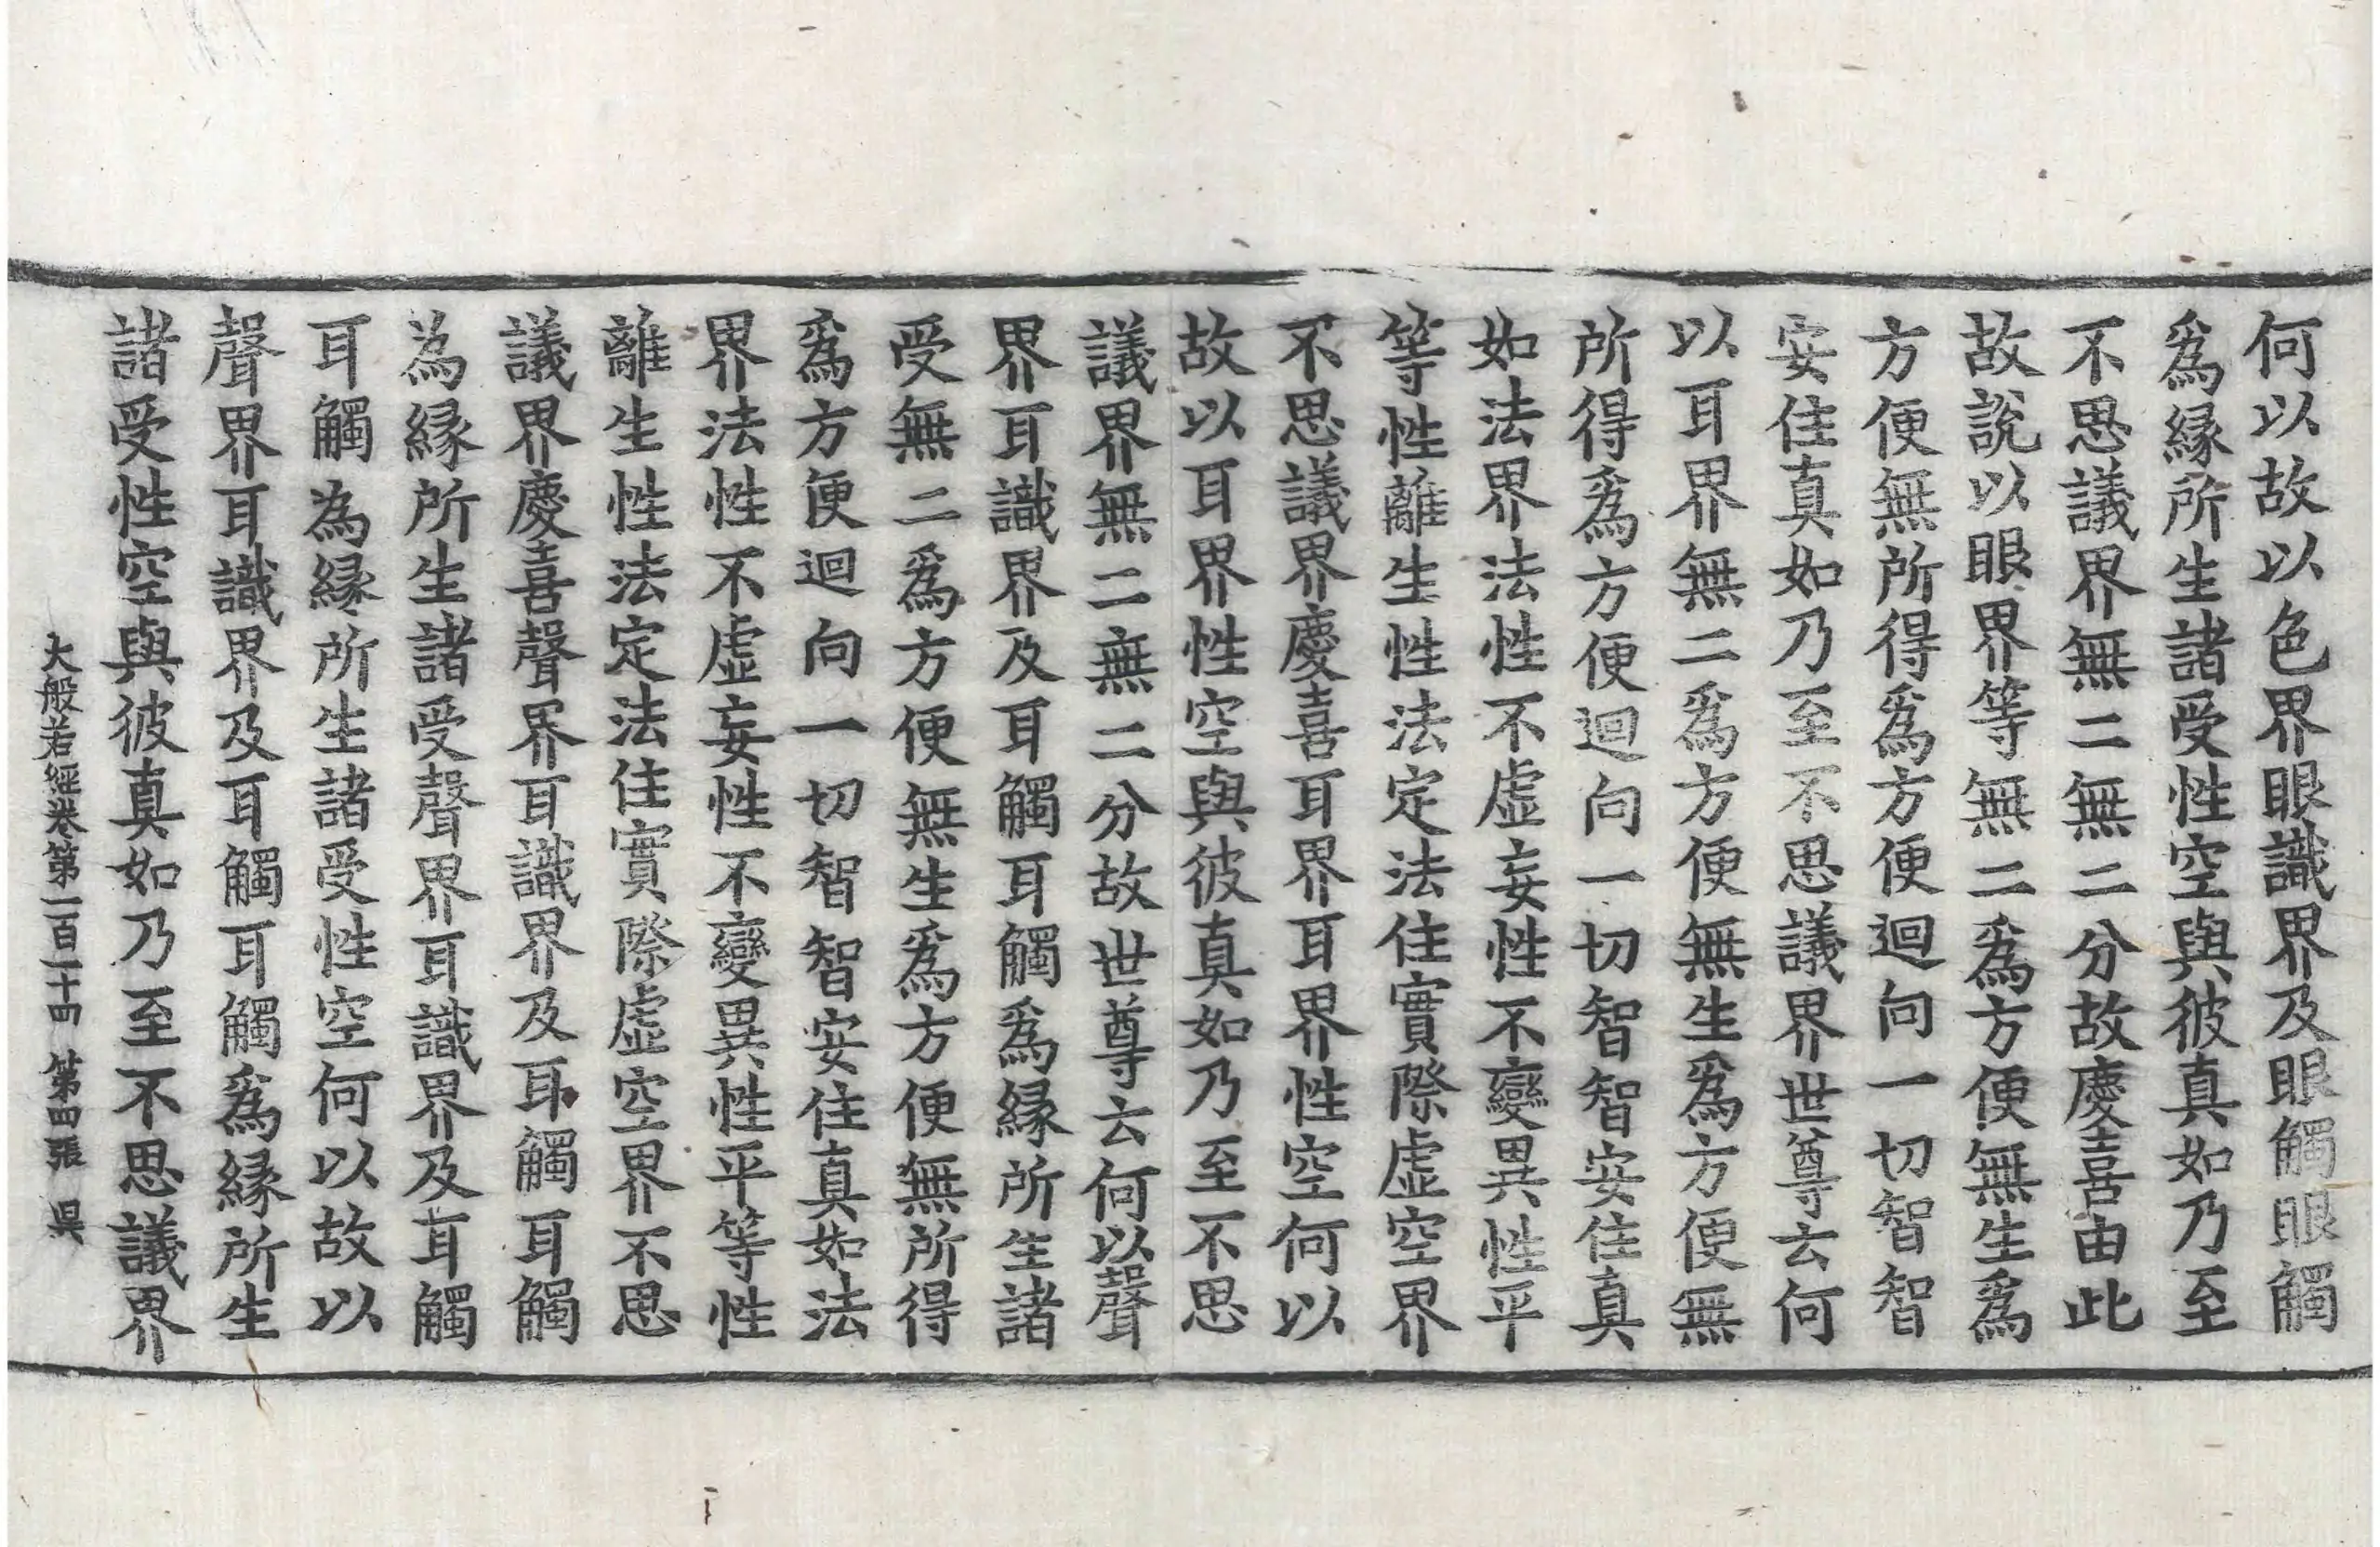 何以故以色界眼識界及眼觸眼觸
爲縁所生諸受性空與彼真如乃至
不思議界無二無二分故慶喜由此
故說以眼界等無二爲方便無生爲
方便無所得爲方便迴向一切智智
安住真如乃至不思議界世尊云何
以耳界無二爲方便無生爲方便無
所得爲方便迴向一切智智安住真
如法界法性不虛妄性不變異性平
等性離生性法定法住實際虛空界
不思議界慶喜耳界耳界性空何以
故以耳界性空與彼真如乃至不思
議界無二無二分故世尊云何以聲
界耳識界及耳觸耳觸爲縁所生諸
受無二爲方便無生爲方便無所得
爲方便迴向一切智智安住真如法
界法性不虛妄性不變異性平等性
離生性法定法住實際虛空界不思
議界慶喜聲界耳識界及耳觸耳觸
為縁所生諸受聲界耳識界及耳觸
耳觸為縁所生諸受性空何以故以
聲界耳識界及耳觸耳觸爲縁所生
諸受性空與彼真如乃至不思議界
大般若經卷第一百一十四 第四張 昃